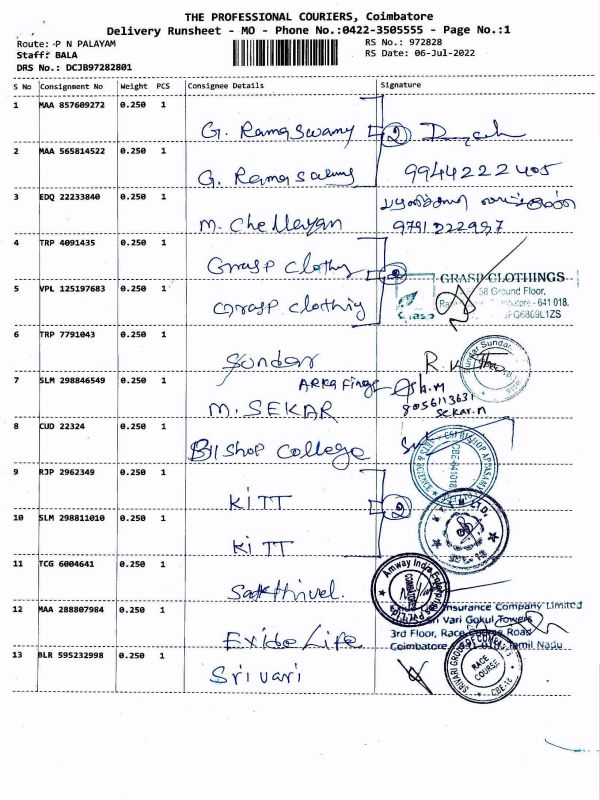 THE PROFESSIONAL COURIERS, Coimbatore
Delivery Runsheet - MO - Phone No.:0422-3505555 - Page No.:1
Route: P N PALAYAM
RS No.: 972828
Staff: BALA
RS Date: 06-Jul-2022
DRS No.: DCJB97282801
S No Consignment No Weight PCS Consignee Details Signature
1 MAA 857609272 0.250 1
G. Ramaswamy 2
2 MAA 565814522 0.250 1
G. Ramaswamy 9944222405
3 EDQ 22233840 0.250 1
M. Chellayan 9791222987
4 TRP 4091435 0.250 1
Grasp Clothig 2
5 VPL 125197683 0.250 1
Grasp clothig
GRASP CLOTHINGS
58 Ground Floor,
Coimbatore - 641 018.
Grasp
6 TRP 7791043 0.250 1
Sundar
Sundar
7 SLM 298846549 0.250 1
ARKA
M. SEKAR
8056113631
Sekar.M
8 CUD 22324 0.250 1
BIshop College
CSI BISHOP APPASAMY
CBE-641018
9 RJP 2962349 0.250 1
KITT 2
10 SLM 298811010 0.250 1
KITT
LTD.
11 TCG 6004641 0.250 1
Sakthivel.
Amway India Enterprises Pvt. Ltd.
COIMBATORE
12 MAA 288807984 0.250 1
Exide Life
Insurance Company Limited
Vari Gokul Towers
3rd Floor, Race Course Road
Coimbatore Tamil Nadu
13 BLR 595232998 0.250 1
Srivari
SRIVARI GROUP OF COMPANIES
RACE COURSE
CBE-18